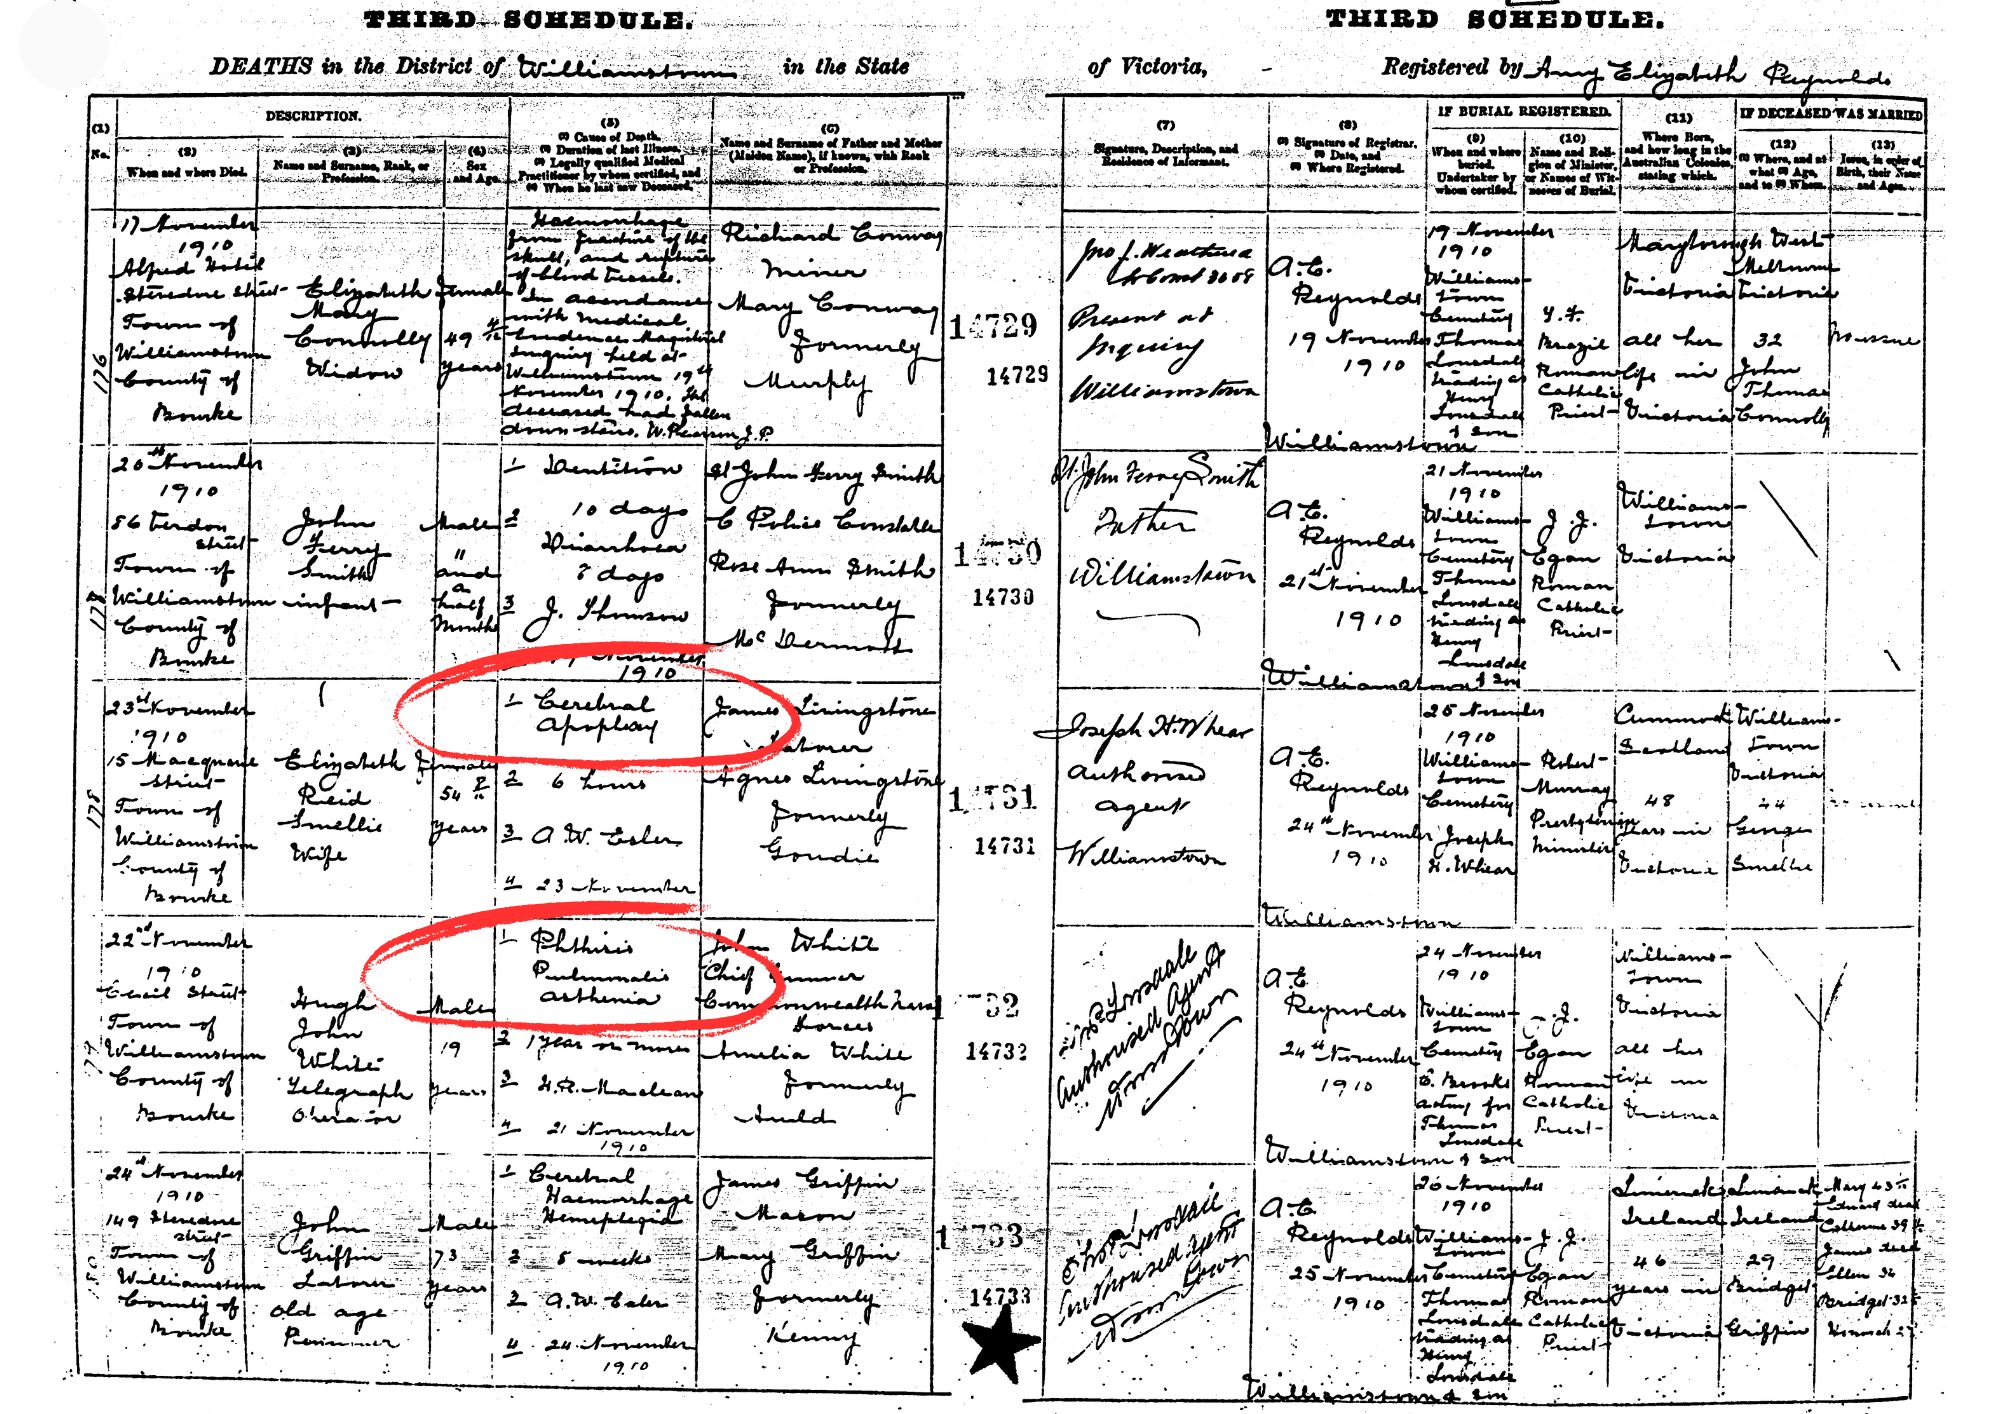 THIRD SCHEDULE.
DEATHS in the District of Williamstown in the State
(1)
No.
DESCRIPTION.
(2)
When and where Died.
(3)
Name and Surname, Rank, or
Profession.
(4)
Sex
and Age.
(5)
(1) Cause of Death,
(2) Duration of last Illness,
(3) Legally qualified Medical
Practitioner by whom certified, and
(4) When he last saw Deceased.
(6)
Name and Surname of Father and Mother
(Maiden Name), if known, with Rank
or Profession.
176
17 November
1910
Alfred Hotel
Stevedore Street
Town of
Williamstown
County of
Bourke
Elizabeth
Mary
Connolly
Widow
Female
49 4/12
years
Haemorrhage
from fracture of the
skull, and rupture
of blood vessels.
In accordance
with medical
Evidence Magisterial
Inquiry held at
Williamstown 19th
November 1910. The
deceased had fallen
down stairs. W. Pearson J.P.
Richard Conway
Miner
Mary Conway
formerly
Murphy
14729
14729
20th November
1910
56 Verdon
Street
Town of
Williamstown
County of
Bourke
John
Ferry
Smith
infant
Male
11
and
a
half
Months
1 Dentition
2 10 days
Diarrhoea
7 days
3 J. Thomson
November
1910
St John Ferry Smith
C Police Constable
Rose Ann Smith
formerly
McDermott
14730
14730
178
23rd November
1910
15 Macquarie
Street
Town of
Williamstown
County of
Bourke
Elizabeth
Reid
Smellie
Wife
Female
54
years
1 Cerebral
Apoplexy
2 6 hours
3 A.W. Esler
4 23 November
James Livingstone
Laborer
Agnes Livingstone
formerly
Goudie
14731
14731
179
22nd November
1910
Cecil Street
Town of
Williamstown
County of
Bourke
Hugh
John
White
Telegraph
Operator
Male
19
years
1 Phthisis
Pulmonalis
Asthenia
2 1 year or more
3 H.R. Maclean
4 21 November
1910
John White
Chief Gunner
Commonwealth Naval
Forces
Amelia White
formerly
Auld
14732
24th November
1910
149 Stevedore
Street
Town of
Williamstown
County of
Bourke
John
Griffin
Laborer
old age
Pensioner
Male
73
years
1 Cerebral
Haemorrhage
Hemiplegia
2 5 weeks
3 A.W. Esler
4 24 November
1910
James Griffin
Mason
Mary Griffin
formerly
Kenny
14733
14733
THIRD SCHEDULE.
of Victoria, Registered by Amy Elizabeth Reynolds
(7)
Signature, Description, and
Residence of Informant.
(8)
(1) Signature of Registrar,
(2) Date, and
(3) Where Registered.
IF BURIAL REGISTERED.
(9)
When and where
buried.
Undertaker by
whom certified.
(10)
Name and Reli-
gion of Minister,
or Names of Wit-
nesses of Burial.
(11)
Where Born,
and how long in the
Australian Colonies,
stating which.
IF DECEASED WAS MARRIED
(12)
(1) Where, and at
what (2) Age,
and to (3) Whom.
(13)
Issue, in order of
Birth, their Names
and Ages.
Present at
Inquiry
Williamstown
A.E.
Reynolds
19 November
1910
Williamstown
19 November
1910
Williams-
town
Cemetery
Thomas
Lonsdale
trading as
Henry
Lonsdale
& Son
Brazil
Roman
Catholic
Priest
Maryborough
Victoria
all her
life in
Victoria
West
Melbourne
Victoria
32
John
Thomas
Connolly
No issue
St. John Ferry Smith
Father
Williamstown
A.E.
Reynolds
21st November
1910
Williamstown
21 November
1910
Williams-
town
Cemetery
Thomas
Lonsdale
trading as
Henry
Lonsdale
& Son
J. J.
Egan
Roman
Catholic
Priest
Williams-
town
Victoria
Joseph H. Whear
Authorised
agent
Williamstown
A.E.
Reynolds
24th November
1910
Williamstown
25 November
1910
Williams-
town
Cemetery
Joseph
H. Whear
Robert
Murray
Presbyterian
Minister
Cumnock
Scotland
48
years in
Victoria
Williams-
town
Victoria
24
George
Smellie
Thos. Lonsdale
Authorised Agent
Wmstown
A.E.
Reynolds
24th November
1910
Williamstown
24 November
1910
Williams-
town
Cemetery
E. Brooks
acting for
Thomas
Lonsdale
& Son
J.
Egan
Roman
Catholic
Priest
Williams-
town
Victoria
all his
life in
Victoria
Thos. Lonsdale
Authorised Agent
Wmstown
A.E.
Reynolds
25 November
1910
Williamstown
26 November
1910
Williams-
town
Cemetery
Thomas
Lonsdale
trading as
Henry
Lonsdale
& Son
J. J.
Egan
Roman
Catholic
Priest
Limerick
Ireland
46
years in
Victoria
Limerick
Ireland
29
Bridget
Griffin
Mary 43
Edward dead
Catherine 39
James dead
Ellen 34
Bridget 32
Hannah 27